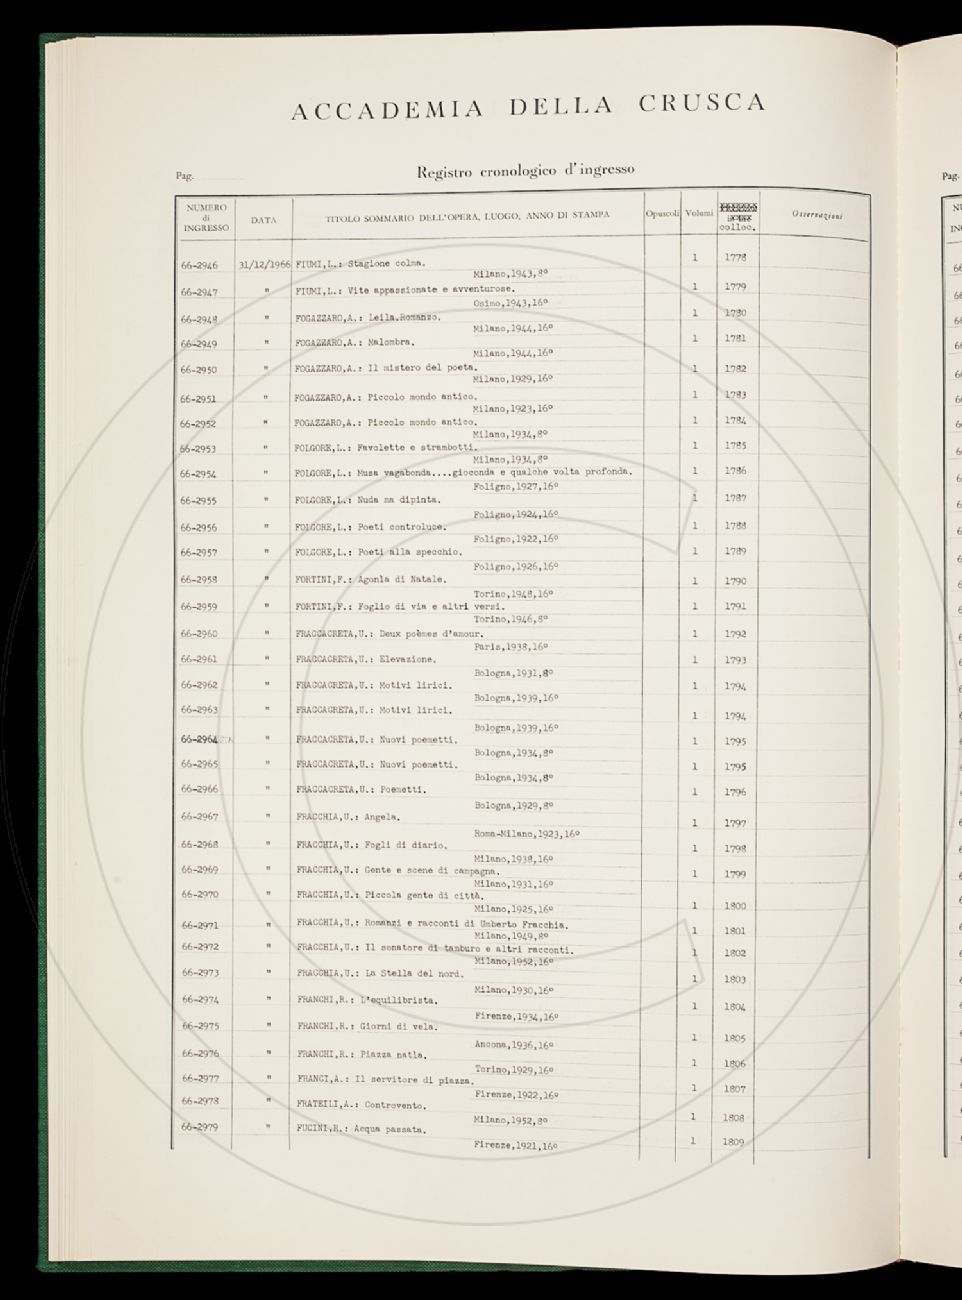 ACCADEMIA DELLA CRUSCA
Pag.
Registro cronologico d'ingresso
NUMERO di INGRESSO DATA TITOLO SOMMARIO DELL'OPERA, LUOGO, ANNO DI STAMPA Opuscoli Volumi colloc. Osservazioni
66-2946 31/12/1966 FIUMI,L.: Stagione colma. 1 1778
Milano,1943,8º
66-2947 " FIUMI,L.: Vite appassionate e avventurose. 1 1779
Osimo,1943,16º
66-2948 " FOGAZZARO,A.: Leila.Romanzo. 1 1780
Milano,1944,16º
66-2949 " FOGAZZARO,A.: Malombra. 1 1781
Milano,1944,16º
66-2950 " FOGAZZARO,A.: Il mistero del poeta. 1 1782
Milano,1929,16º
66-2951 " FOGAZZARO,A.: Piccolo mondo antico. 1 1783
Milano,1923,16º
66-2952 " FOGAZZARO,A.: Piccolo mondo antico. 1 1784
Milano,1934,8º
66-2953 " FOLGORE,L.: Favolette e strambotti. 1 1785
Milano,1934,8º
66-2954 " FOLGORE,L.: Musa vagabonda....gioconda e qualche volta profonda. 1 1786
Foligno,1927,16º
66-2955 " FOLGORE,L.: Nuda ma dipinta. 1 1787
Foligno,1924,16º
66-2956 " FOLGORE,L.: Poeti controluce. 1 1788
Foligno,1922,16º
66-2957 " FOLGORE,L.: Poeti alla specchio. 1 1789
Foligno,1926,16º
66-2958 " FORTINI,F.: Agonia di Natale. 1 1790
Torino,1948,16º
66-2959 " FORTINI,F.: Foglio di via e altri versi. 1 1791
Torino,1946,8º
66-2960 " FRACCACRETA,U.: Deux poèmes d'amour. 1 1792
Paris,1938,16º
66-2961 " FRACCACRETA,U.: Elevazione. 1 1793
Bologna,1931,8º
66-2962 " FRACCACRETA,U.: Motivi lirici. 1 1794
Bologna,1939,16º
66-2963 " FRACCACRETA,U.: Motivi lirici. 1 1794
Bologna,1939,16º
66-2964 " FRACCACRETA,U.: Nuovi poemetti. 1 1795
Bologna,1934,8º
66-2965 " FRACCACRETA,U.: Nuovi poemetti. 1 1795
Bologna,1934,8º
66-2966 " FRACCACRETA,U.: Poemetti. 1 1796
Bologna,1929,8º
66-2967 " FRACCHIA,U.: Angela. 1 1797
Roma-Milano,1923,16º
66-2968 " FRACCHIA,U.: Fogli di diario. 1 1798
Milano,1938,16º
66-2969 " FRACCHIA,U.: Gente e scene di campagna. 1 1799
Milano,1931,16º
66-2970 " FRACCHIA,U.: Piccola gente di città. 1 1800
Milano,1925,16º
66-2971 " FRACCHIA,U.: Romanzi e racconti di Umberto Fracchia. 1 1801
Milano,1949,8º
66-2972 " FRACCHIA,U.: Il sonatore di tamburo e altri racconti. 1 1802
Milano,1952,16º
66-2973 " FRACCHIA,U.: La Stella del nord. 1 1803
Milano,1930,16º
66-2974 " FRANCHI,R.: L'equilibrista. 1 1804
Firenze,1934,16º
66-2975 " FRANCHI,R.: Giorni di vela. 1 1805
Ancona,1936,16º
66-2976 " FRANCHI,R.: Piazza natia. 1 1806
Torino,1929,16º
66-2977 " FRANCI,A.: Il servitore di piazza. 1 1807
Firenze,1922,16º
66-2978 " FRATEILI,A.: Controvento. 1 1808
Milano,1952,8º
66-2979 " FUCINI,R.: Acqua passata. 1 1809
Firenze,1921,16º
Pag.